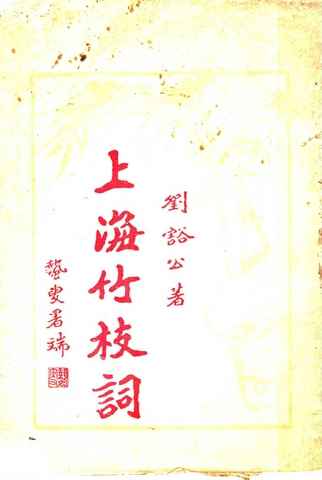 劉豁公著
上海竹枝詞
藝叟署端